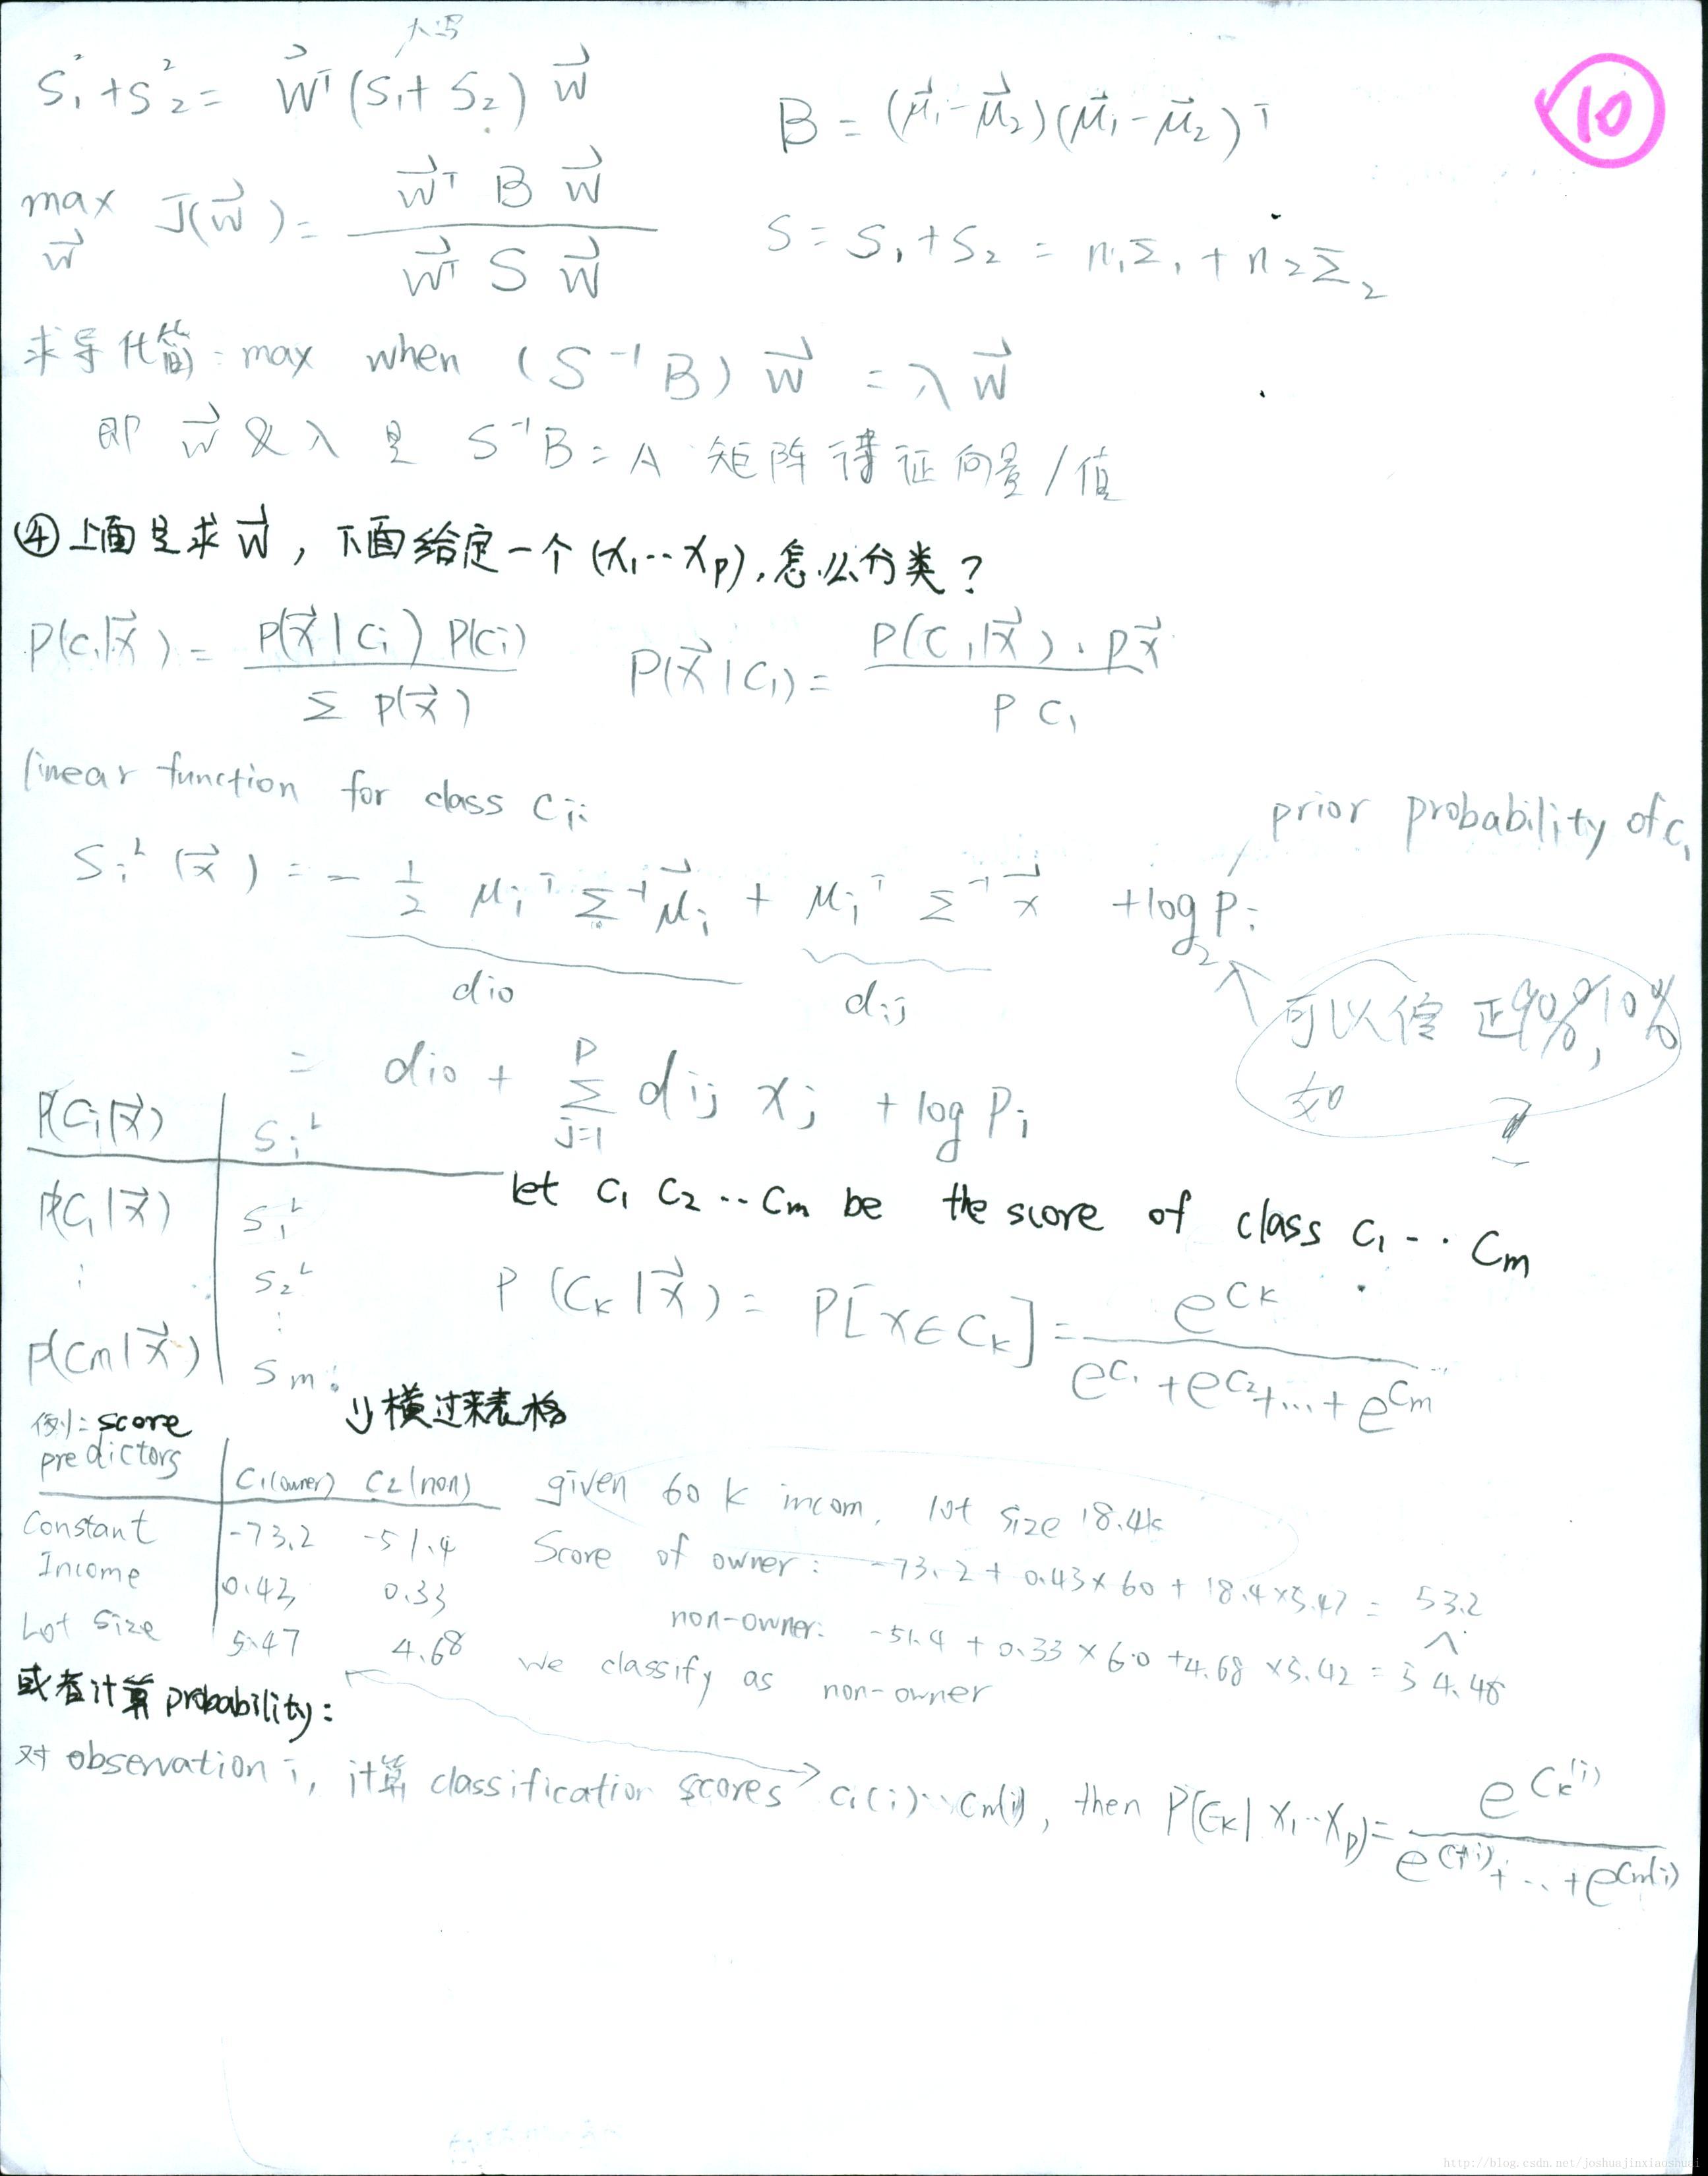 大写
S₁² + S₂² = W⃗ᵀ (S₁ + S₂) W⃗
B = (μ⃗₁ - μ⃗₂)(μ⃗₁ - μ⃗₂)ᵀ
10
max W⃗ J(W⃗) = W⃗ᵀ B W⃗ / W⃗ᵀ S W⃗
S = S₁ + S₂ = n₁Σ₁ + n₂Σ₂
求导化简: max when (S⁻¹B) W⃗ = λ W⃗
即 W⃗ & λ 是 S⁻¹B = A 矩阵特征向量/值
④ 上面是求 W⃗, 下面给定一个 (x₁…xₚ), 怎么分类?
P(C₁|x⃗) = P(x⃗|Cᵢ) P(Cᵢ) / Σ P(x⃗)
P(x⃗|C₁) = P(C₁|x⃗)·Px⃗ / P C₁
linear function for class Cᵢ:
prior probability of C₁
Sᵢᴸ(x⃗) = - 1/2 μᵢᵀ Σ⁻¹ μ⃗ᵢ + μᵢᵀ Σ⁻¹ x⃗ + log₂ Pᵢ
dᵢ₀ dᵢⱼ
可以 正 90%, 10%
如
= dᵢ₀ + Σⱼ₌₁ᵖ dᵢⱼ xⱼ + log Pᵢ
P(Cᵢ|x⃗) Sᵢᴸ
let C₁ C₂ ‥ Cm be the score of class C₁ ‥ Cm
P(C₁|x⃗) S₁ᴸ
⋮ S₂ᴸ
⋮
P(Cₖ|x⃗) = P[x∈Cₖ] = e^Cₖ / e^C₁ + e^C₂ + … + e^Cm
P(Cm|x⃗) Sm
横过来表格
例: score
predictors C₁(owner) C₂(non)
Constant -73.2 -51.4
Income 0.43 0.33
Lot Size 5.47 4.68
given 60 k incom, lot size 18.4k
Score of owner: -73.2 + 0.43×60 + 18.4×5.47 = 53.2
∧
non-owner: -51.4 + 0.33×60 + 4.68×5.42 = 54.48
we classify as non-owner
或者计算 probability:
对 observation i, 计算 classification scores C₁(i)‥Cm(i), then P[Cₖ|x₁‥xₚ) = e^Cₖ(i) / e^C₁(i) + ‥ + e^Cm(i)
http://blog.csdn.net/joshuajinxiaoshuai